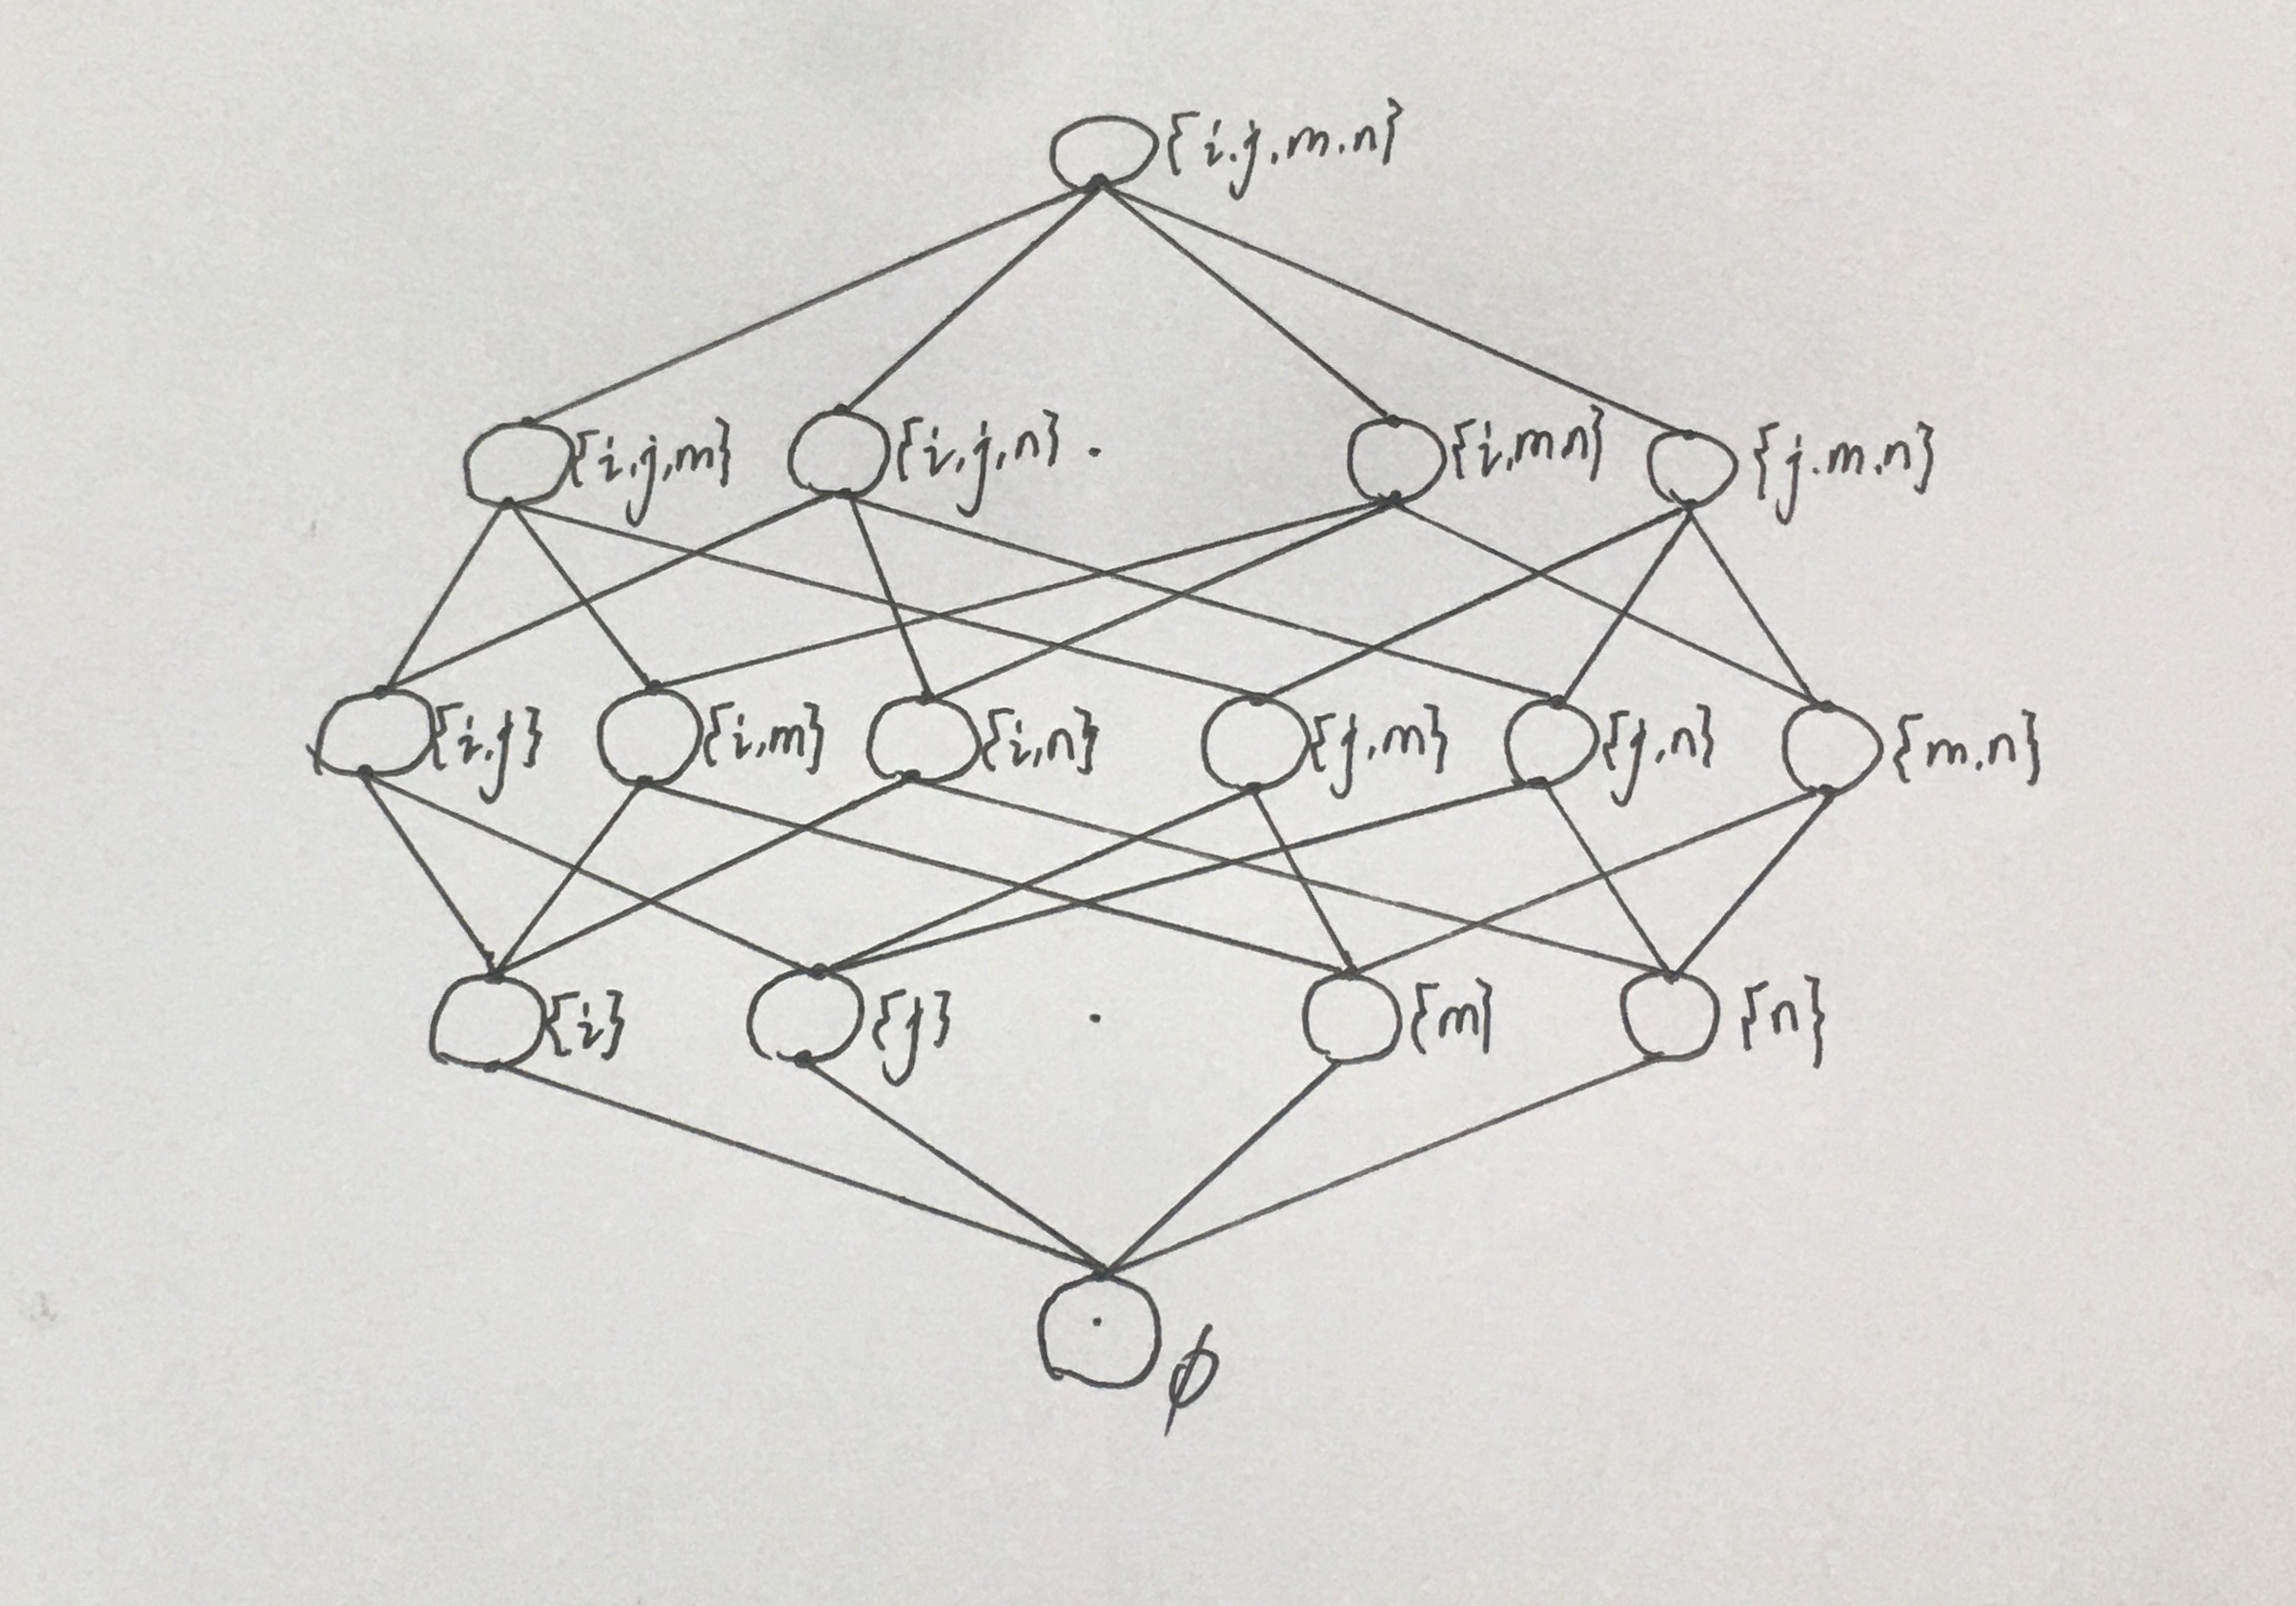 {i.j.m.n}
{i,j,m} {i,j,n} {i,mn} {j.m.n}
{i.j} {i,m} {i,n} {j,m} {j,n} {m.n}
{i} {j} {m} {n}
ϕ